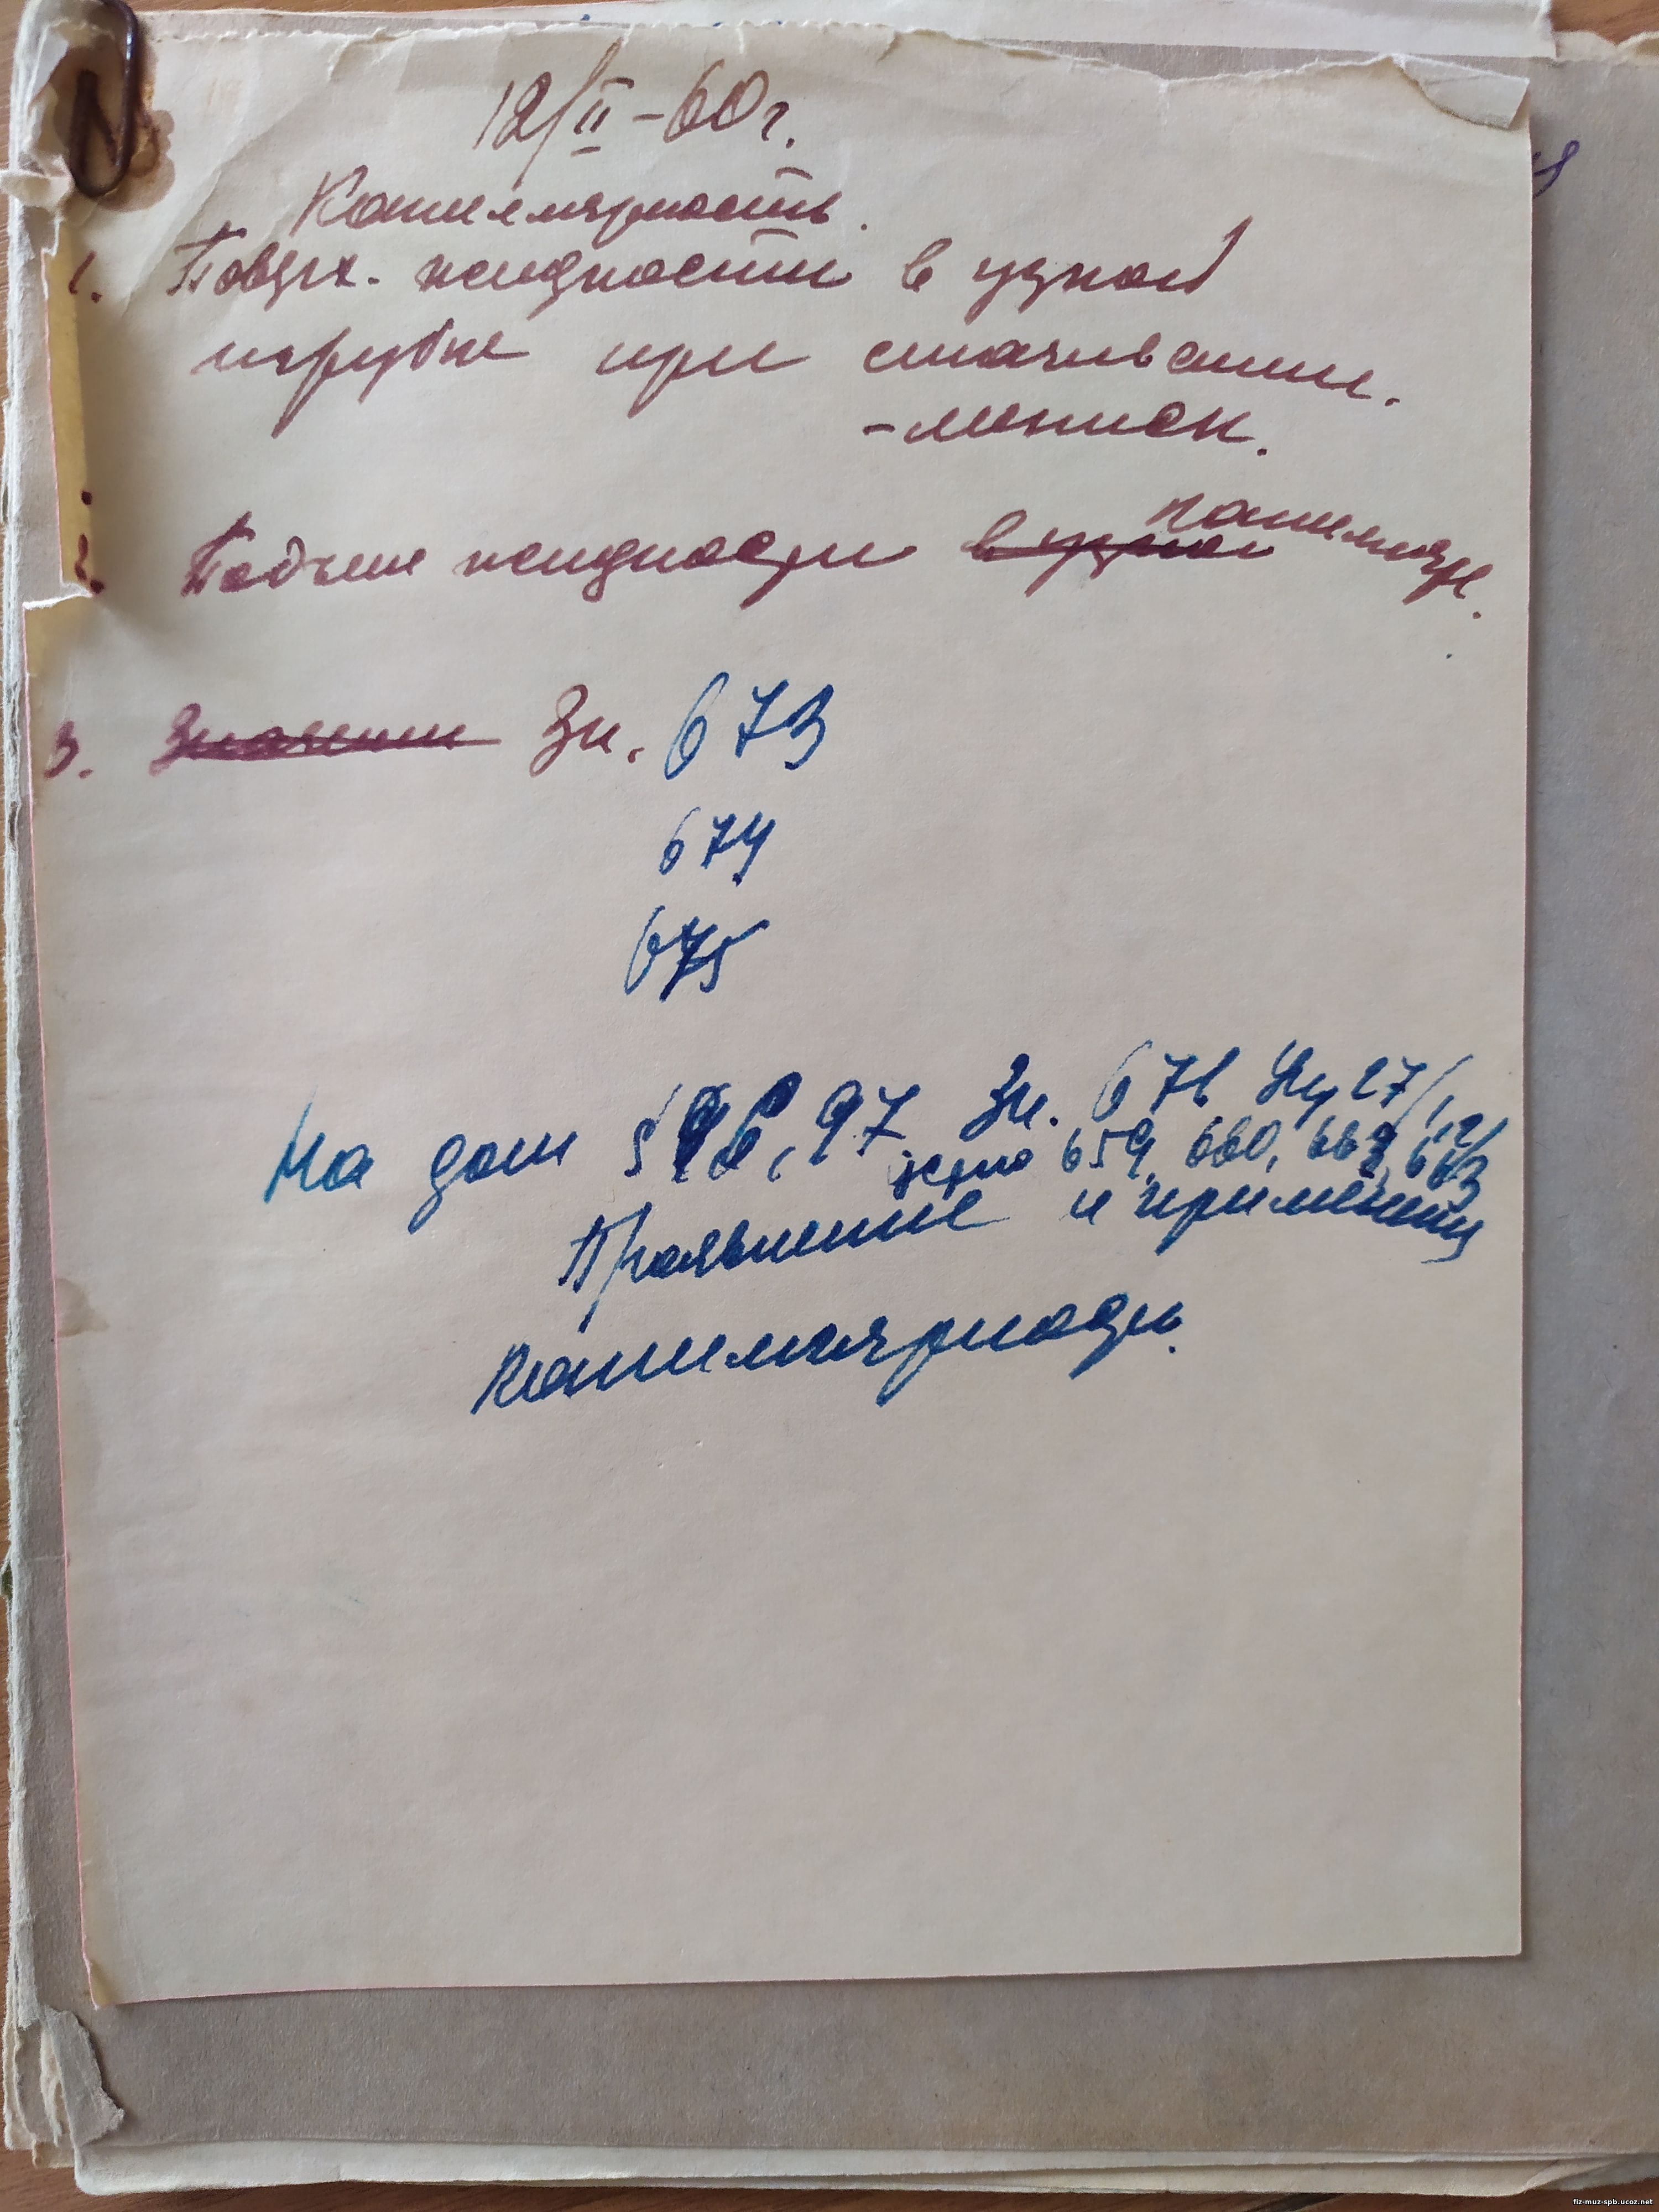 12/II – 60 г.
Капиллярность.
1. Поверх. жидкости в узкой
трубке при смачивании.
– мениск.
2. Подъем жидкости в узкой капилляре.
3. Значение Зн. 673
674
675
На дом § 96, 97 Зн. 676 27/1, 2/
устно 659, 660, 662, 663
Проявление и применение
капиллярности.
fiz-muz-spb.ucoz.net